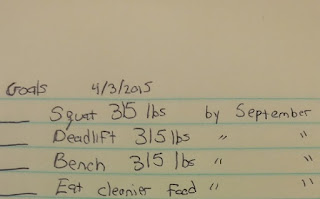 Goals 4/3/2015
___ Squat 315 lbs by September
___ Deadlift 315 lbs " "
___ Bench 315 lbs " "
___ Eat cleanier food " "